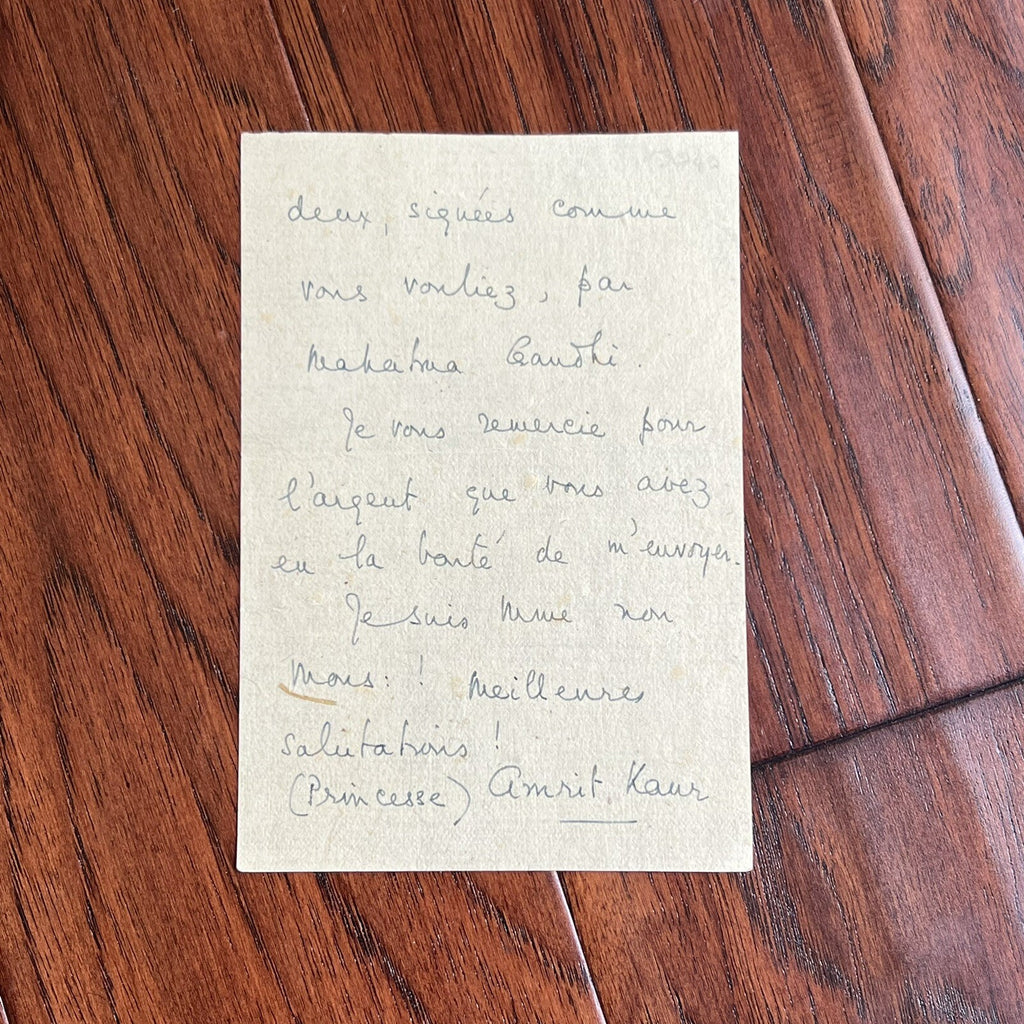 deux, signées comme
vous vouliez, par
Mahatma Gandhi.
Je vous remercie pour
l'argent que vous avez
eu la bonté de m'envoyer.
Je suis Mme non
Mons: ! Meilleures
salutations !
(Princesse) Amrit Kaur